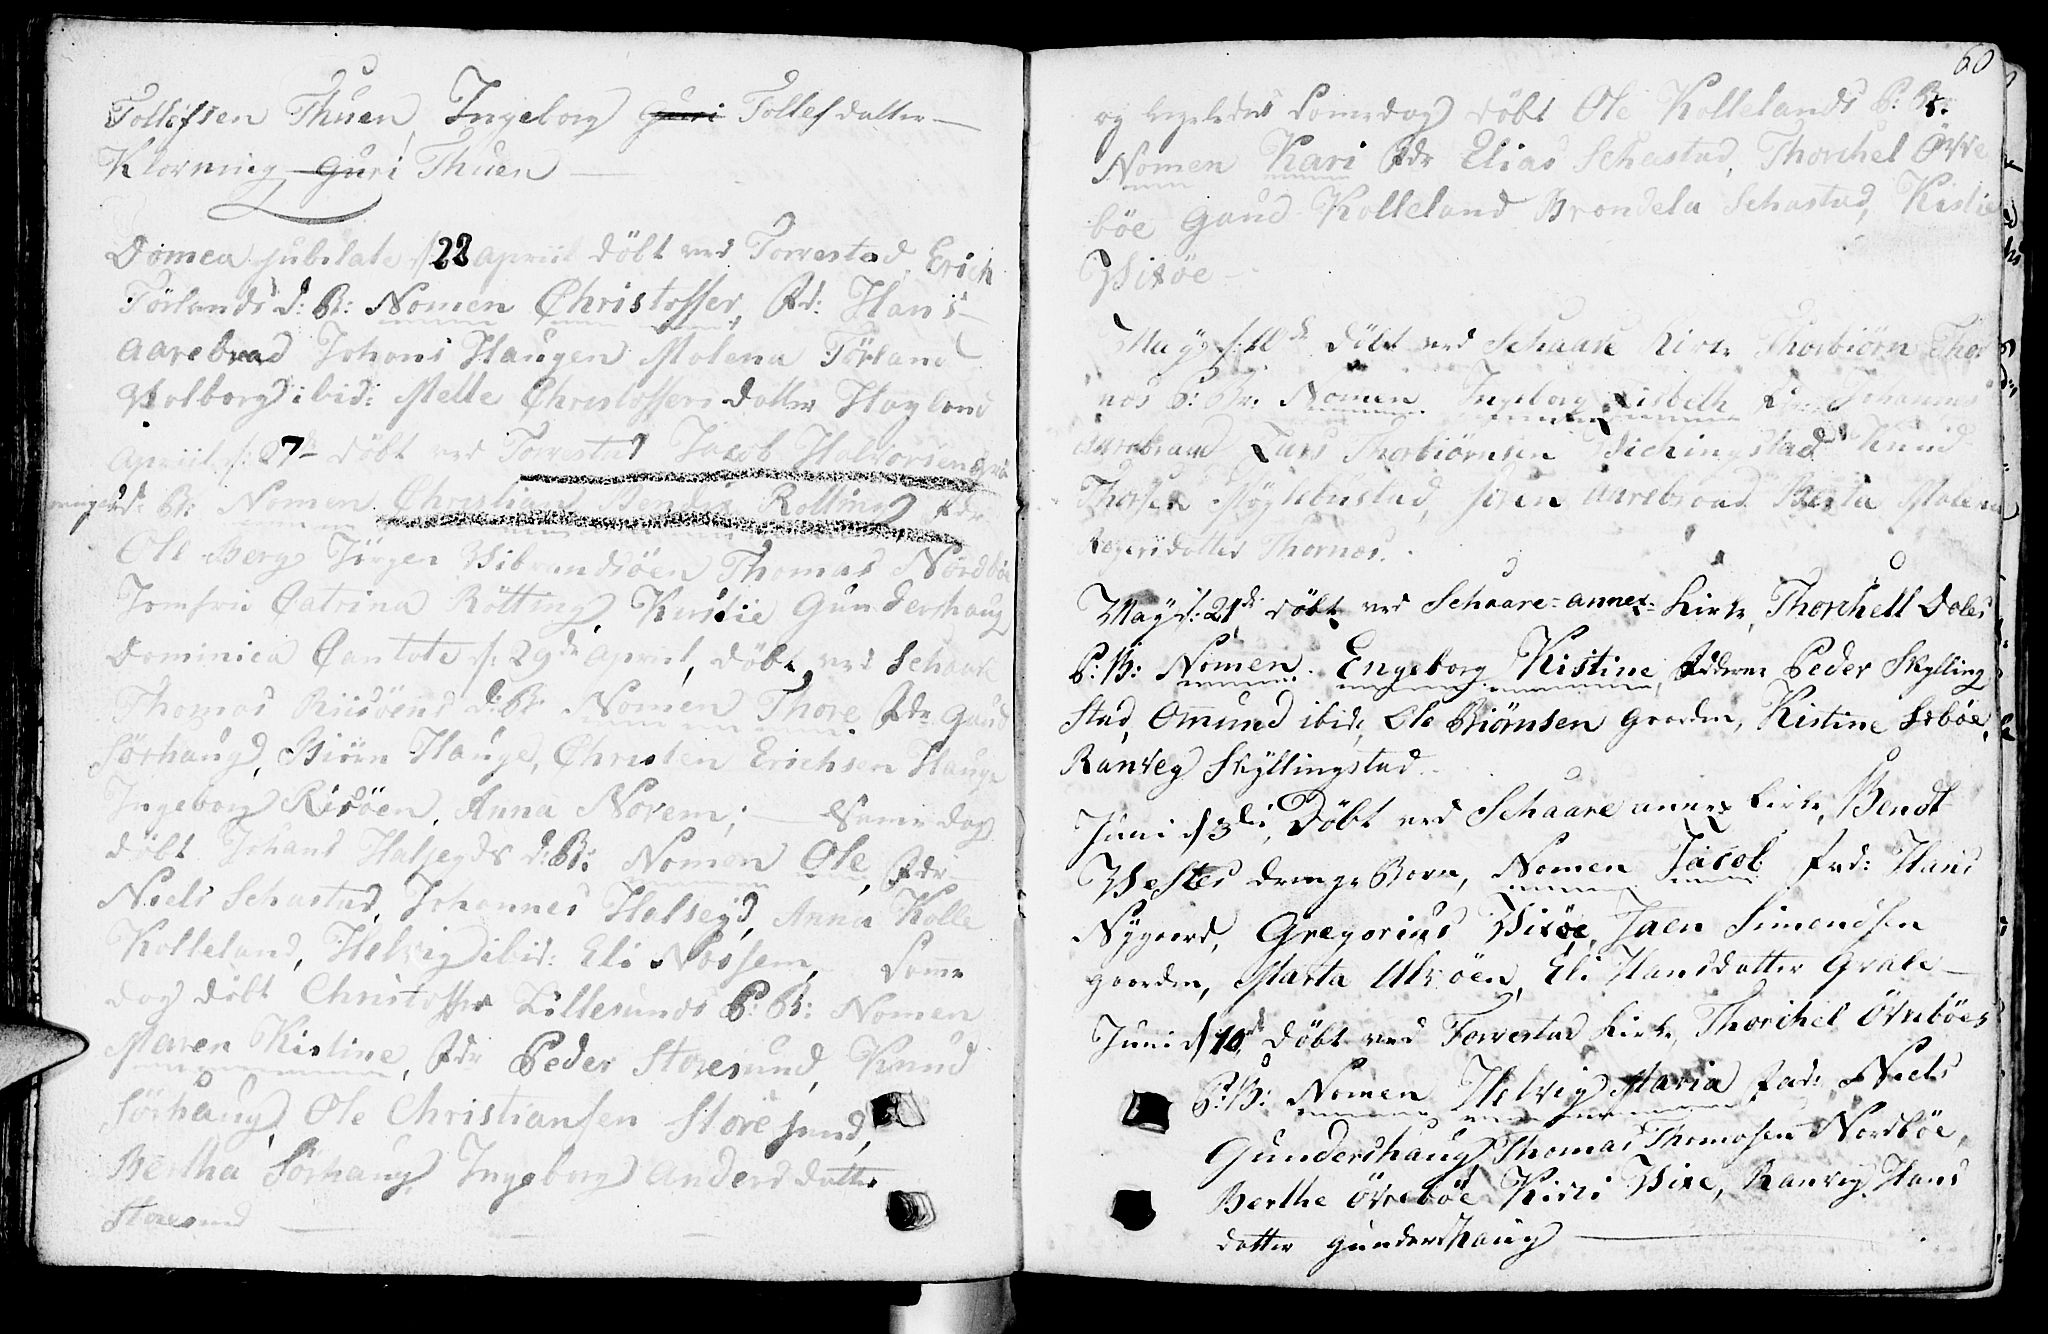 Tollefsen Thuen, Ingeborg Guri Tollefsdatter —
Klovning Guri Thuen —
Domca jubilate d 22 Apriil döbt ved Torrestad Erich
Törlands d: B: Nomen Christoffer, Fd: Hans
Aarebrad Johans Haugen Molena Törland
Wolborg ibid: Mette Christoffers datter Hayland
Apriil d: 27de döbt ved Torrestad Jacob Halvorsen
d: B: Nomen Christian Rotting Fdr
Ole Berg Jörgen Wibrandsöen Thomas Nordböe
Jomfru Catrina Rötting, Kirstie Gundershaug
Dominica Cantate d: 29de Apriil, döbt ved Schaare
Thomas Risöens d: B: Nomen Thore Fdr Gaud
Sörhaug, Biörn Hauge, Christen Erichsen Hauge
Ingeborg Risöen, Anna Norem; — Samme dag
döbt Johans Halseyds d: B: Nomen Ole, Fdr
Niels Schastad, Johannes Helseyd, Anna Kolle
Kolleland, Helvig ibid: Eli Nossem, Samme
dag döbt Christoffer Lillesunds P: B: Nomen
Maren Kistine, Fdr Peder Storesund, Knud
Sörhaug, Ole Christiansen Storesund,
Bertha Sörhaug, Ingeborg Anders datter
Storesund —
60
og ligeledes samedag döbt Ole Kollelands P: B:
Nomen Kari Fdr Elias Schastad, Thorchel Övre
böe Gaud Kolleland Brondela Schastad, Kistie
Wixöe —
May d: döbt ved Schaare Kirke Thorbiörn Thor
nos P: B: Nomen Ingeborg Lisbeth Johannes
Aarebraad Lars Thorbiörnsen Wichingstad Knud
Thorsen siren Aarebraad Berta Malena
Regersdatter Thornos.
May d: 21de döbt ved Schaare=annex=Kirke, Thorchell Dales
P: B: Nomen. Engeborg Kistine, Fdderne Peder Skylling
stad, Omund ibid, Ole Biörnsen Gaarden, Kistine Seböe,
Ranveg Skyllingstad.
Juni d 3de, Döbt ved Schaare annex Kirke, Bendt
Westes drenge Barn, Nomen Jacob Fad: Hans
Nygaard, Gregorius Wixöe, Jaen Simensen
gaarden, Marta Ulvöen, Eli Hansdatter Grale —
Juni d 10de döbt ved Torrestad Kirke, Thorchel Övreböes
P: B: Nomen Helvig Maria Fad: Niels
Gundershaug, Thomas Thomasen Nordböe,
Berthe Övreböe Kirsti Wixe, Ranveig Hans
datter gundershaug —